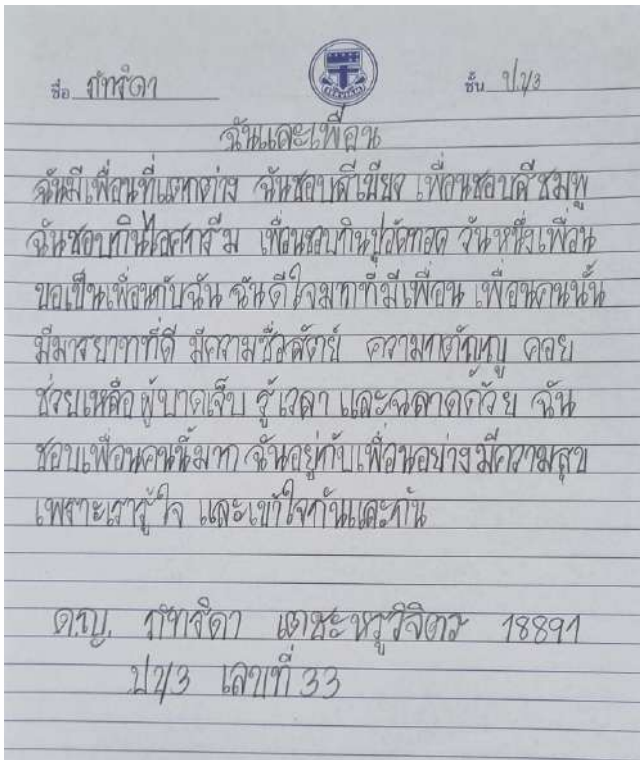 ชื่อ ภัทริดา ชั้น ป.1/3
ฉันและเพื่อน
ฉันมีเพื่อนที่แตกต่าง ฉันชอบสีเขียว เพื่อนชอบสีชมพู
ฉันชอบกินไอศกรีม เพื่อนชอบกินปูอัดทอด วันหนึ่งเพื่อน
ขอเป็นเพื่อนกับฉัน ฉันดีใจมากที่มีเพื่อน เพื่อนคนนั้น
มีมารยาทที่ดี มีความซื่อสัตย์ ความกตัญญู คอย
ช่วยเหลือผู้บาดเจ็บ รู้เวลา และฉลาดด้วย ฉัน
ชอบเพื่อนคนนี้มาก ฉันอยู่กับเพื่อนอย่างมีความสุข
เพราะเรารู้ใจ และเข้าใจกันและกัน
ด.ญ. ภัทริดา เตชะหรูวิจิตร 18891
ป1/3 เลขที่ 33